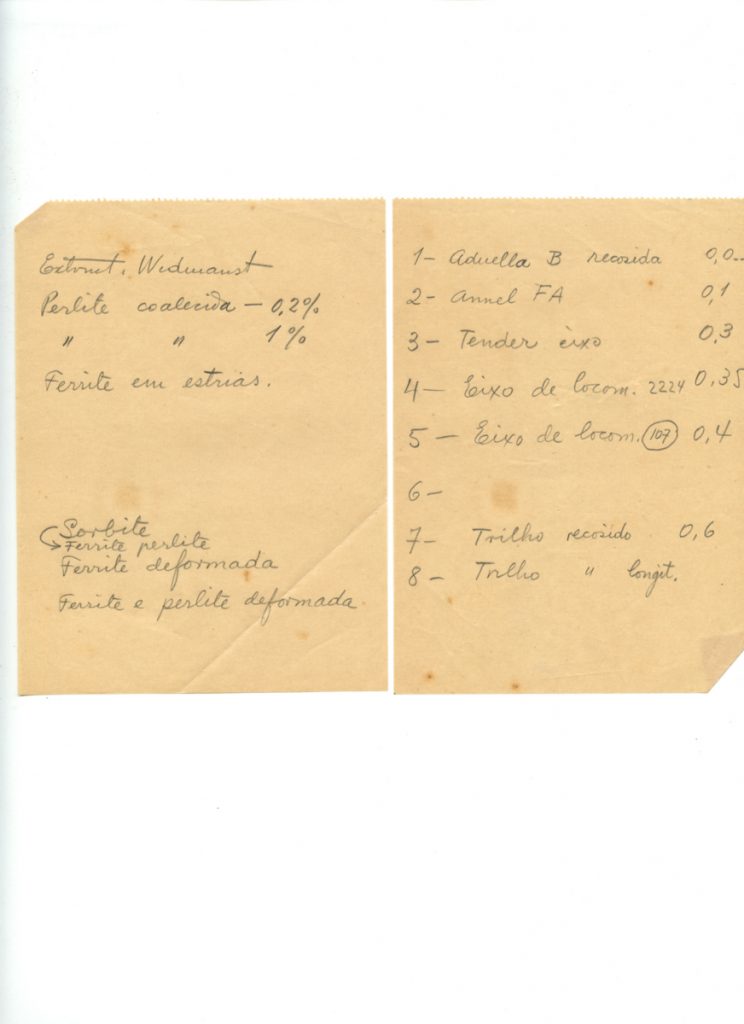 Estrut. Widmanst
Perlite coalecida – 0,2%
" " 1%
Ferrite em estrias.
Sorbite
Ferrite perlite
Ferrite deformada
Ferrite e perlite deformada
1 – Aduella B recosida 0,0
2 – Annel FA 0,1
3 – Tender eixo 0,3
4 – Eixo de locom. 2224 0,35
5 – Eixo de locom. 107 0,4
6 –
7 – Trilho recosido 0,6
8 – Trilho " longit.